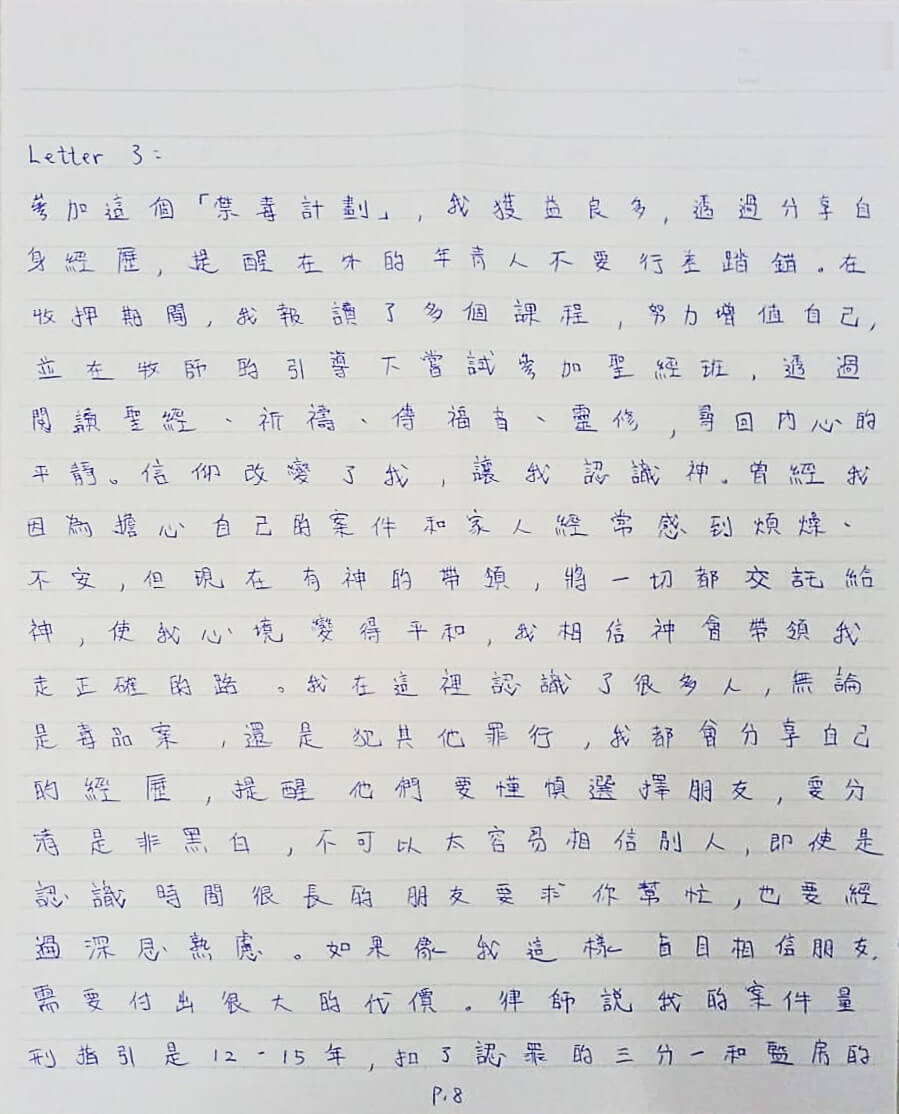 Letter 3:
參加這個「禁毒計劃」,我獲益良多,透過分享自
身經歷,提醒在外的年青人不要行差踏錯。在
收押期間,我報讀了多個課程,努力增值自己,
並在牧師的引導下嘗試參加聖經班,透過
閱讀聖經、祈禱、傳福音、靈修,尋回內心的
平靜。信仰改變了我,讓我認識神。曾經我
因為擔心自己的案件和家人經常感到煩燥、
不安,但現在有神的帶領,將一切都交託給
神,使我心境變得平和,我相信神會帶領我
走正確的路。我在這裡認識了很多人,無論
是毒品案,還是犯其他罪行,我都會分享自己
的經歷,提醒他們要懂慎選擇朋友,要分
清是非黑白,不可以太容易相信別人,即使是
認識時間很長的朋友要求你幫忙,也要經
過深思熟慮。如果像我這樣盲目相信朋友,
需要付出很大的代價。律師說我的案件量
刑指引是12-15年,扣了認罪的三分一和監房的
P.8